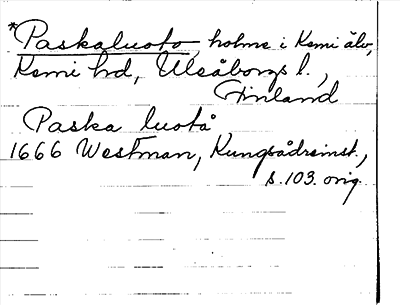 *Paskaluoto, holme i Kemi älv,
Kemi hd, Uleåborgs l.,
Finland
Paska luotå
1666 Westman, Kungsådreinst.,
s. 103. orig.